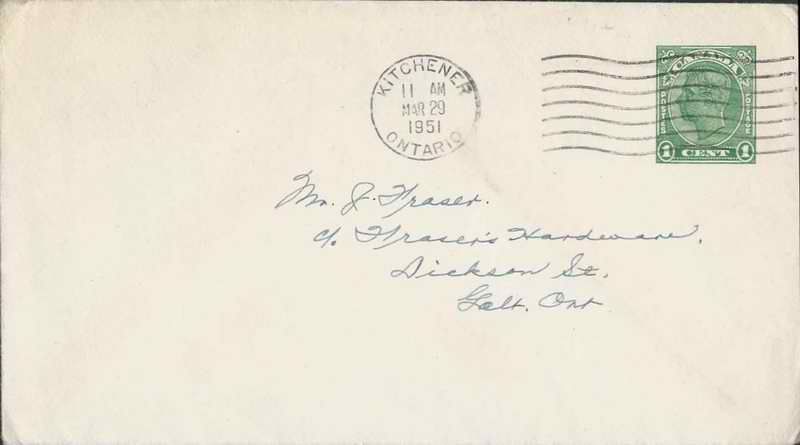 KITCHENER
11 AM
MAR 29
1951
ONTARIO
CANADA
POSTES
POSTAGE
1 CENT 1
Mr. J. Fraser.
c/o Fraser's Hardware,
Dickson St.
Galt. Ont